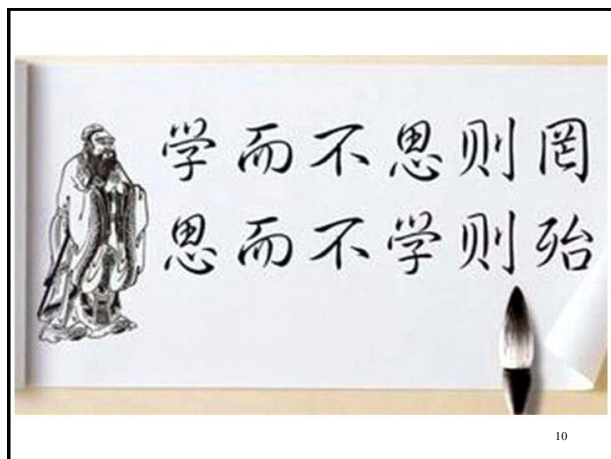 学而不思则罔
思而不学则殆
10